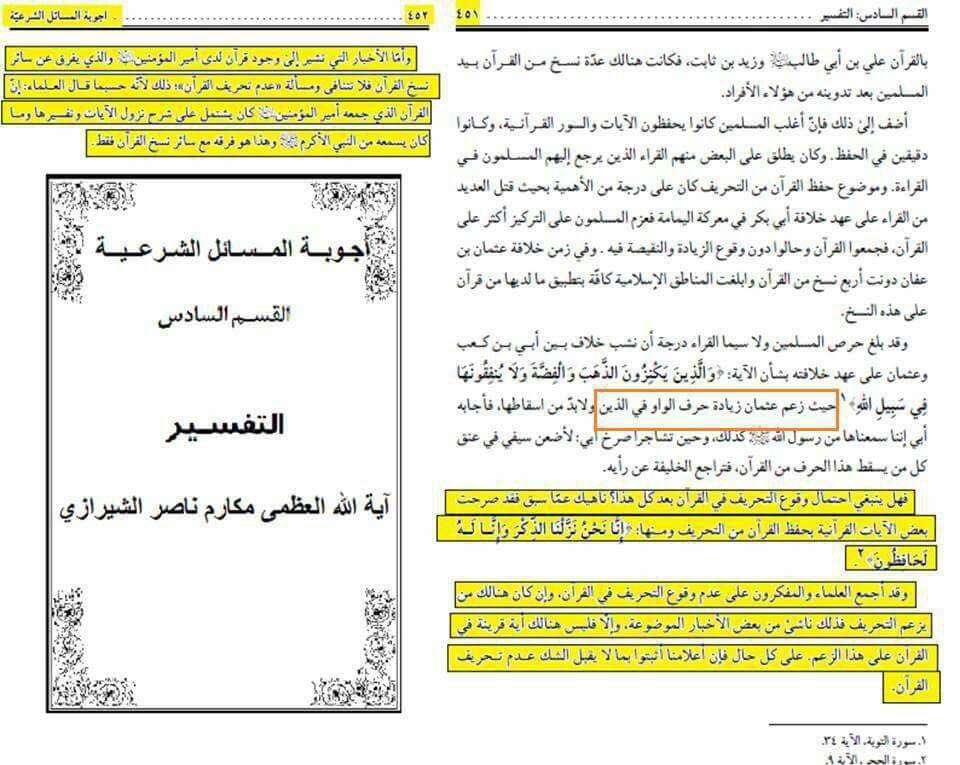 القسم السادس: التفسير ........ ٤٥١
بالقرآن علي بن أبي طالب ﷺ وزيد بن ثابت، فكانت هنالك عدّة نسخ من القرآن بيد
المسلمين بعد تدوينه من هؤلاء الأفراد.
أضف إلى ذلك فإنّ أغلب المسلمين كانوا يحفظون الآيات والسور القرآنية، وكانوا
دقيقين في الحفظ. وكان يطلق على البعض منهم القراء الذين يرجع إليهم المسلمون في
القراءة. وموضوع حفظ القرآن من التحريف كان على درجة من الأهمية بحيث قتل العديد
من القراء على عهد خلافة أبي بكر في معركة اليمامة فعزم المسلمون على التركيز أكثر على
القرآن، فجمعوا القرآن وحالوا دون وقوع الزيادة والنقيصة فيه. وفي زمن خلافة عثمان بن
عفان دونت أربع نسخ من القرآن وابلغت المناطق الإسلامية كافّة بتطبيق ما لديها من قرآن
على هذه النسخ.
وقد بلغ حرص المسلمين ولا سيما القراء درجة أن نشب خلاف بين أبي بن كعب
وعثمان على عهد خلافته بشأن الآية: ﴿وَالَّذِينَ يَكْنِزُونَ الذَّهَبَ وَالْفِضَّةَ وَلَا يُنفِقُونَهَا
فِي سَبِيلِ اللهِ﴾١ حيث زعم عثمان زيادة حرف الواو في الذين ولابدّ من اسقاطها، فأجابه
أبي إننا سمعناها من رسول الله ﷺ كذلك، وحين تشاجرا صرخ أبي: لأضعن سيفي في عنق
كل من يسقط هذا الحرف من القرآن، فتراجع الخليفة عن رأيه.
فهل ينبغي احتمال وقوع التحريف في القرآن بعد كل هذا؟ ناهيك عمّا سبق فقد صرحت
بعض الآيات القرآنية بحفظ القرآن من التحريف ومنها: ﴿إِنَّا نَحْنُ نَزَّلْنَا الذِّكْرَ وَإِنَّا لَهُ
لَحَافِظُونَ﴾٢.
وقد أجمع العلماء والمفكرون على عدم وقوع التحريف في القرآن، وإن كان هنالك من
يزعم التحريف فذلك ناشئ من بعض الأخبار الموضوعة، وإلّا فليس هنالك أية قرينة في
القرآن على هذا الزعم. على كل حال فإن أعلامنا أثبتوا بما لا يقبل الشك عدم تحريف
القرآن.
١. سورة التوبة، الآية ٣٤.
٢. سورة الحجر، الآية ٩.
٤٥٢ ........ اجوبة المسائل الشرعيّة
وأمّا الأخبار التي تشير إلى وجود قرآن لدى أمير المؤمنين والذي يفرق عن سائر
نسخ القرآن فلا تتنافى ومسألة «عدم تحريف القرآن»؛ ذلك لأنّه حسبما قال العلماء: إنّ
القرآن الذي جمعه أمير المؤمنين كان يشتمل على شرح نزول الآيات وتفسيرها وما
كان يسمعه من النبي الأكرم ﷺ وهذا هو فرقه مع سائر نسخ القرآن فقط.
اجوبة المسائل الشرعية
القسم السادس
التفسير
آية الله العظمى مكارم ناصر الشيرازي